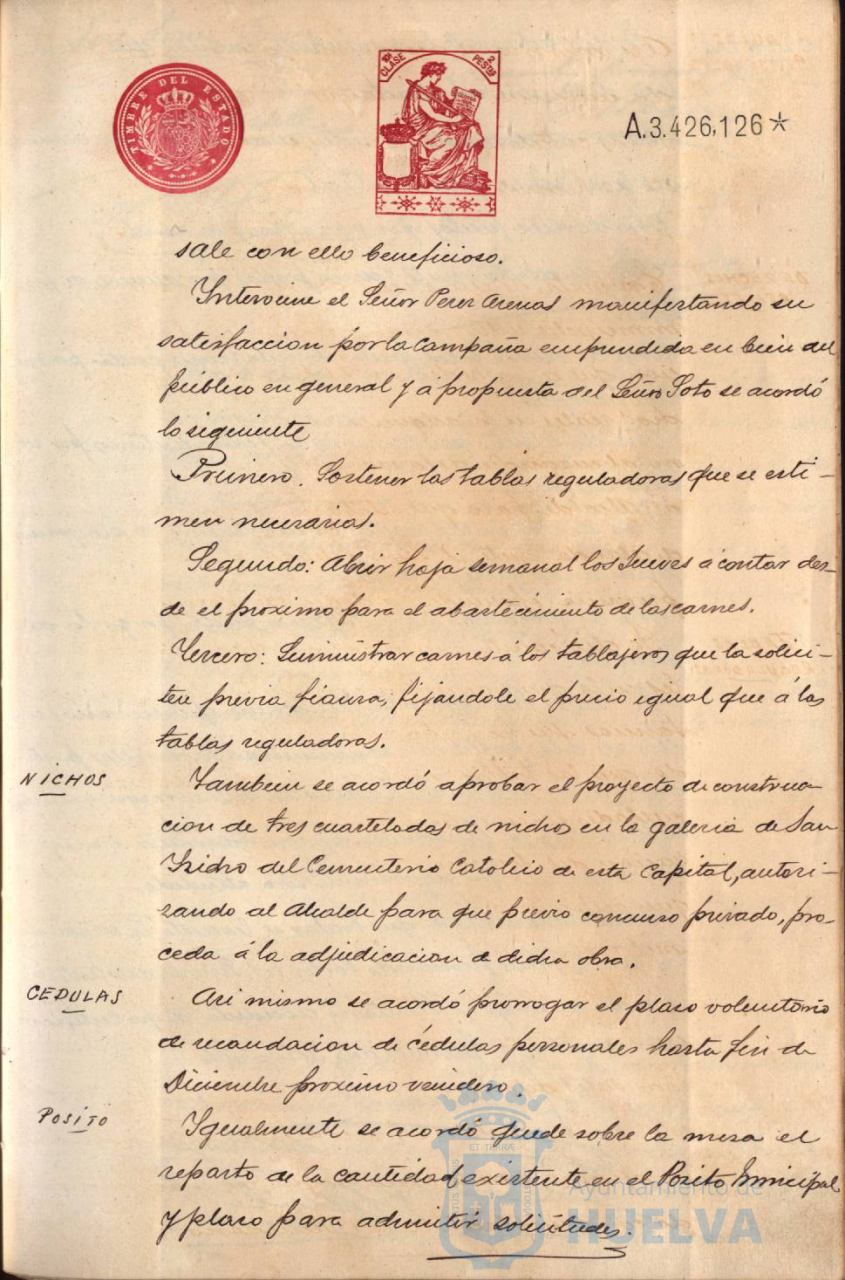 TIMBRE DEL ESTADO
10ª CLASE 2 PESTAS
A.3.426,126*
sale con ello beneficioso.
Interviene el Señor Perez Arenas manifestando su
satisfaccion por la campaña emprendida en bien del
público en general y á propuesta del Señor Soto se acordó
lo siguiente
Primero. Sostener las tablas reguladoras que se esti-
men necesarias.
Segundo: Abrir hoja semanal los Jueves á contar des-
de el proximo para el abastecimiento de las carnes.
Tercero: Suministrar carnes á los tablajeros que la solici-
ten previa fianza, fijandole el precio igual que á las
tablas reguladoras.
NICHOS
Tambien se acordó aprobar el proyecto de construc-
cion de tres cuarteladas de nichos en la galeria de San
Isidro del Cementerio Catolico de esta Capital, autori-
zando al Alcalde para que previo concurso privado, pro-
ceda á la adjudicacion de dicha obra.
CEDULAS
Asi mismo se acordó prorrogar el plazo voluntario
de recaudacion de cédulas personales hasta fin de
Diciembre proximo venidero.
POSITO
Igualmente se acordó quede sobre la mesa el
reparto de la cantidad existente en el Posito Municipal
y plazo para admitir solicitudes.
Ayuntamiento de
HUELVA